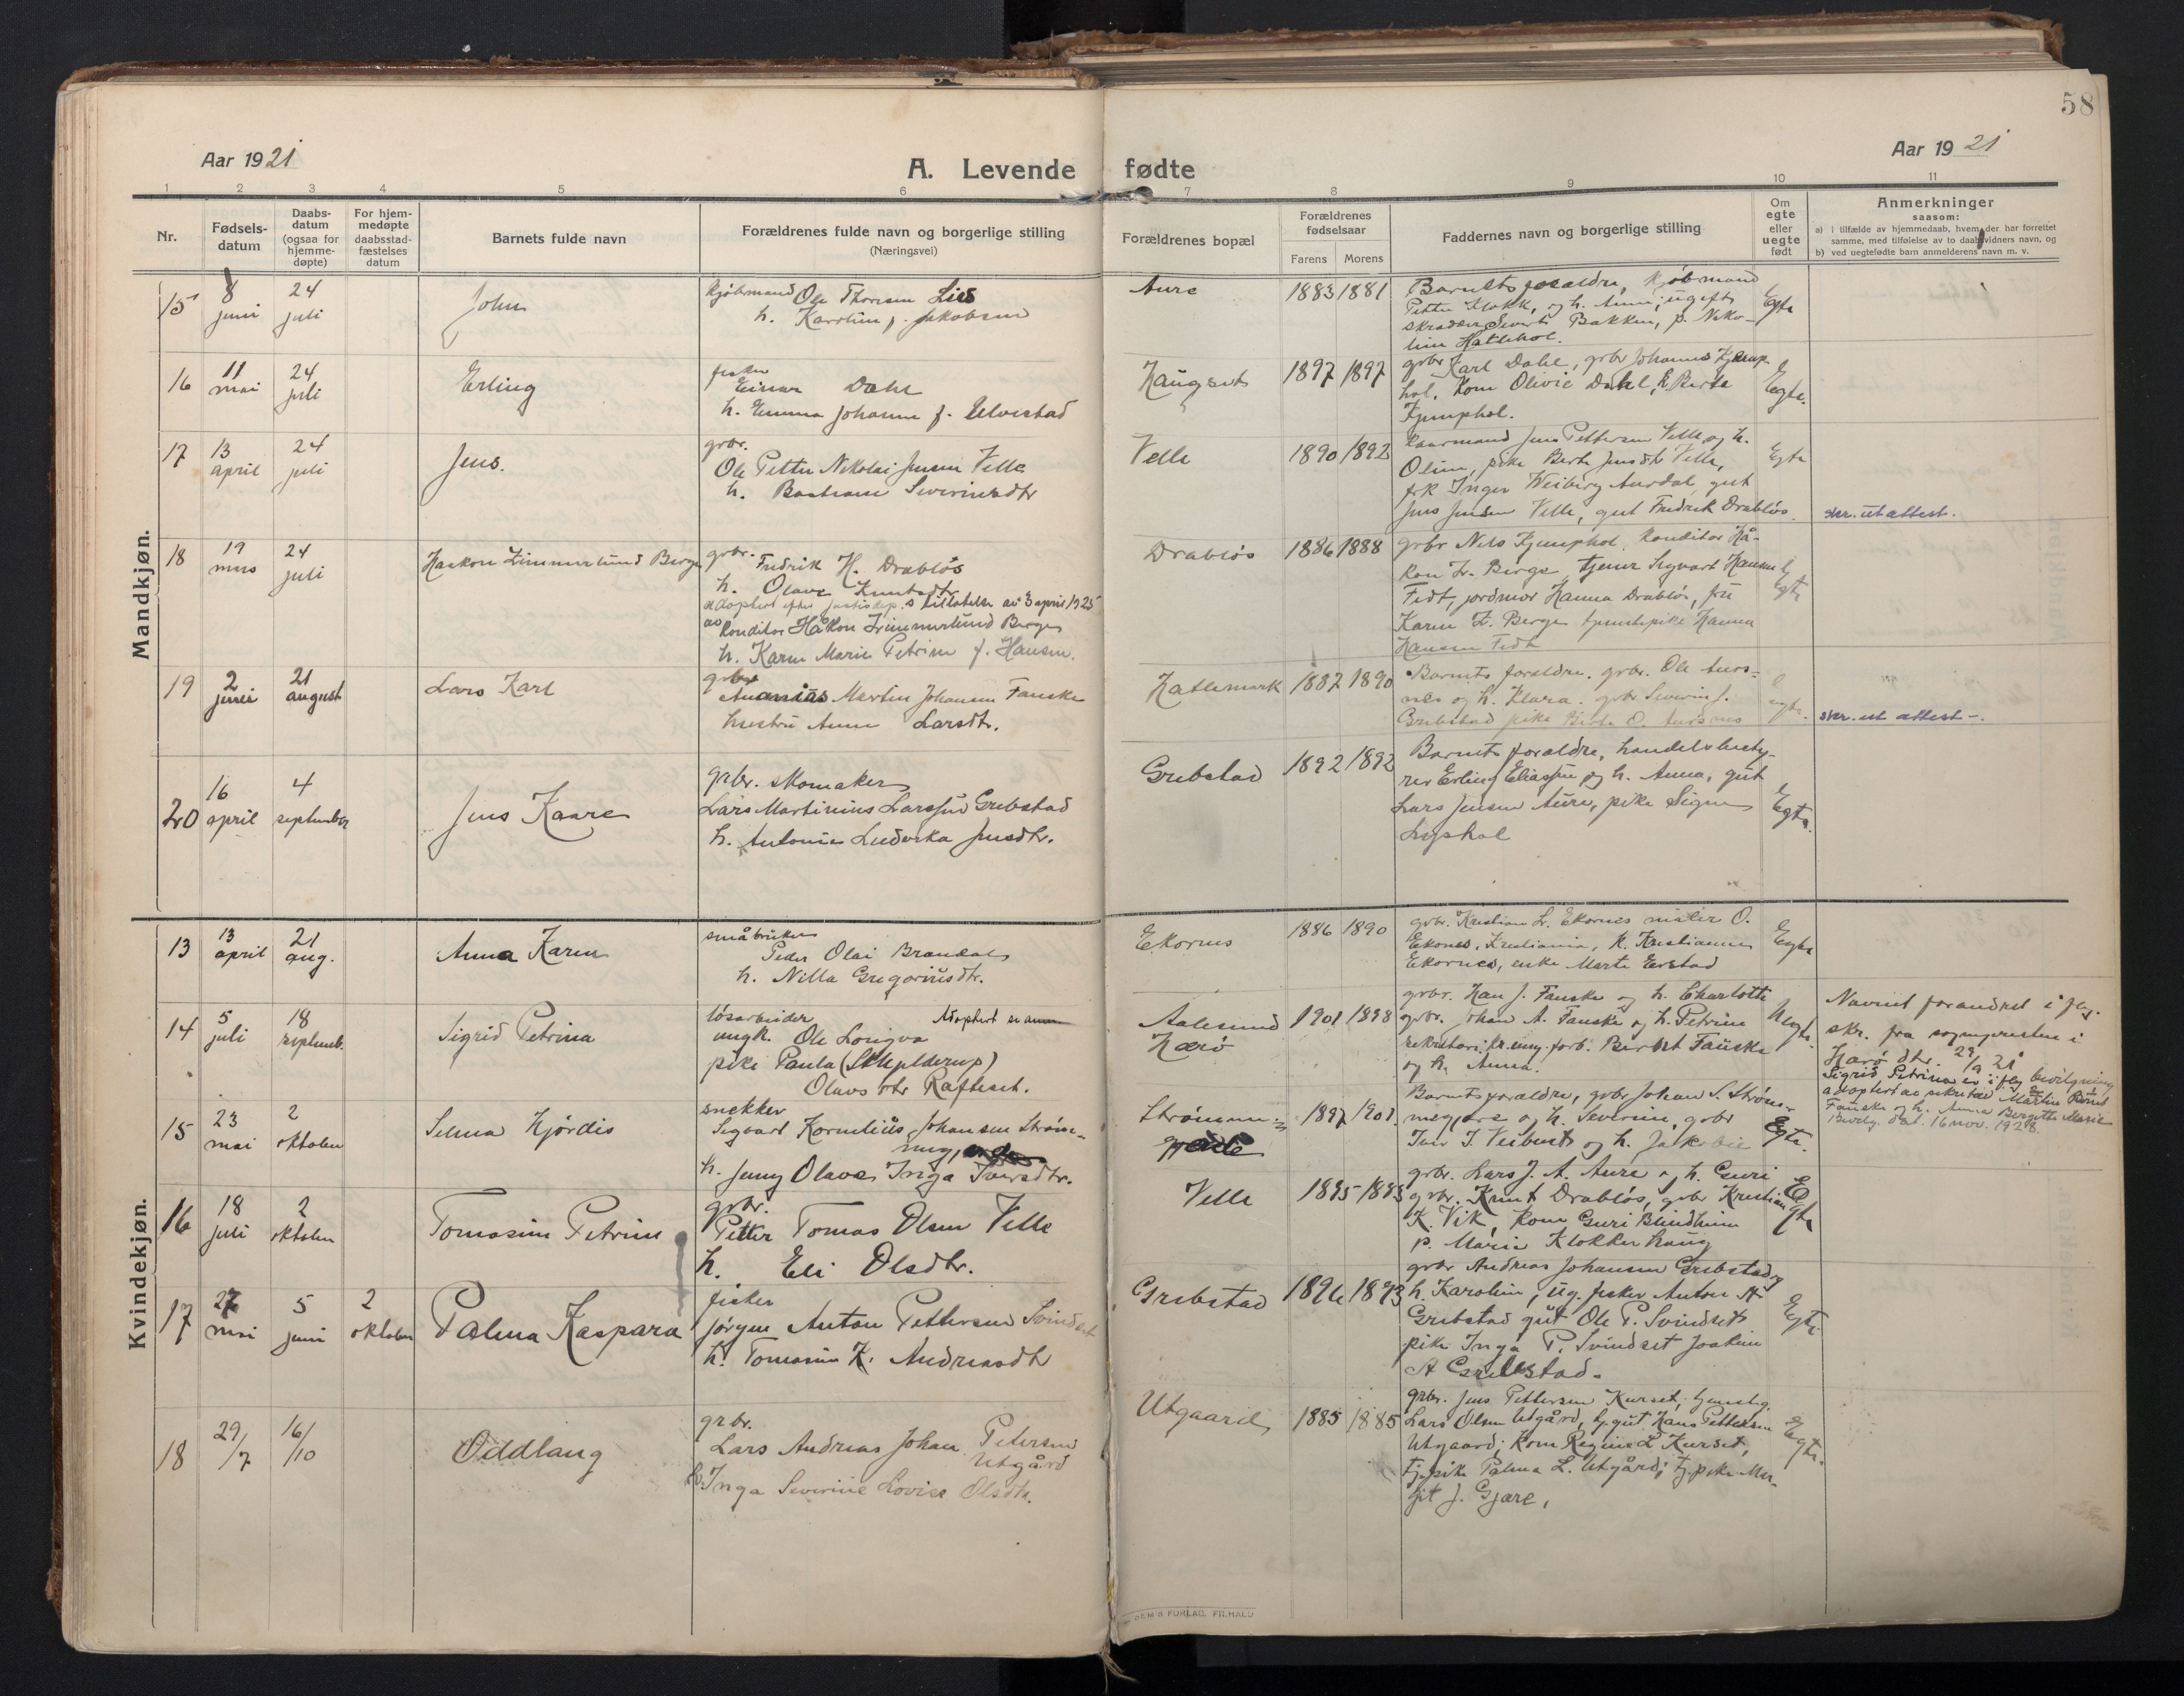 58
Aar 1921
A. Levende fødte
Aar 1921
1 2 3 4 5 6 7 8 9 10 11
Nr.
Fødsels-
datum
Daabs-
datum
(ogsaa for
hjemme-
døpte)
For hjem-
medøpte
daabsstad-
fæstelses
datum
Barnets fulde navn
Forældrenes fulde navn og borgerlige stilling
(Næringsvei)
Forældrenes bopæl
Forældrenes
fødselsaar
Farens Morens
Faddernes navn og borgerlige stilling
Om
egte
eller
uegte
født
Anmerkninger
saasom:
a) i tilfælde av hjemmedaab, hvem der har forrettet
samme, med tilføielse av to daabsvidners navn, og
b) ved uegtefødte barn anmelderens navn m. v.
Mandkjøn.
15
8
juni
24
juli
John
kjøbmand Ole Thoresen
h. Karoline f. Jakobsen
Aure
1883 1881
Barnets forældre, kjøbmand
Petter Klokk, og h. Anna, ugift
skrædder Sivert Bakken, p. Niko-
line Hattehol.
Egte
16
11
mai
24
juli
Erling
fisker
Einar Dahl
h. Emma Johanne f. Ulvestad
Haugset
1897 1897
grbr Karl Dahl, grbr Johannes Kjemp-
hol, kone Olivie Dahl, k. Berte
Kjemphol.
Egte.
17
13
april
24
juli
Jens.
grbr.
Ole Petter Nikolai Jensen Velle
h. Bastiane Severinsdtr
Velle
1890 1892
kaarmand Jens Pettersen Velle og h.
Oline, pike Berte Jensdtr Velle,
frk Inger Weiberg Aurdal, gut
Jens Jensen Velle, gut Fredrik Drabløs.
Egte
skr. ut attest.
18
19
mars
24
juli
Haakon Zimmerlund Berge
grbr. Fredrik H. Drabløs
h. Olave Knutsdtr
adoptert efter justisdep.s tillatelse av 3 april 1925
av konditor Håkon Zimmerlund Berge
h. Karen Marie Petrine f. Hansen.
Drabløs
1886 1888
grbr Nils Kjemphol, konditor Hå-
kon Z. Berge tjener Sigvart Hansen
Fedt, jordmor Hanna Drabløs, fru
Karen Z. Berge tjenestepike Hanna
Hansen Fedt
Egte
19
2
juni
21
august
Lars Karl
grbr
Ananias Martin Johansen Fauske
hustru Anne Larsdtr.
Hattemark
1887 1890
Barnets forældre, grbr. Ole Aurs-
nes og h. Klara. grbr Severin J.
Grebstad pike Berte O. Aursnes
egte.
skr. ut attest -.
20
16
april
4
september
Jens Kaare
grbr. skomaker
Lars Martinius Larssen Grebstad
h. Antonie Ludevika Jensdtr.
Grebstad
1892 1892
Barnets forældre, handelsbesty-
rer Erling Eliassen og h. Anna, gut
Lars Jensen Aure, pike Signe
Lyshol
Egte.
Kvindekjøn.
13
13
april
21
aug.
Anna Karen
småbruker
Peder Olai Brandal
h. Nilla Gregoriusdtr.
Ekornes
1886 1890
grbr. Kristian Lr. Ekornes maler O.
Ekones, Kristiania, k. Kristianne
Ekornes, enke Marte Eerstad
Egte
14
5
juli
18
septemb.
Sigrid Petrina
løsarbeider
ungk. Ole Longva
pike Paula (Skjelderup)
Olavsdtr Rafteset.
Adoptert se anm
Aalesund
Harø
1901 1898
grbr. Hans J. Fauske og h. Charlotte
grbr. Johan A. Fauske og h. Petrine
sekretær i kr. ung. forb. Bernt Fauske
og h. Anna.
Uegte.
Navnet forandret ifølg.
skr. fra sognepresten i
Harø dtr. 29/9 21
Sigrid Petrina er iflg bevilgning
adoptert av sekretær Martin Bernt
Fauske og h. Anna Bergitte Marie
Bevilg. dat. 16 nov. 1928.
15
23
mai
2
oktober
Selma Hjørdis
snekker
Sigvart Kornelius Johansen Strøm-
meg
h. Jenny Olave Inga Iversdtr.
Strømme-
gjerde
1897 1901.
Barnets forældre, grbr Johan S. Strøm-
megjære og h. Severine, grbr
Iver I. Veibust og h. Jakobie
Egte.
16
18
juli
2
oktober
Tomasine Petrine
grbr.
Petter Tomas Olsen Velle
h. Eli Olsdtr.
Velle
1895 1893
grbr. Lars J. A. Aure og h. Guri
grbr. Knut Drabløs, grbr Kristian
K. Vik, kone Guri Blindheim
p. Maria Klokkerhaug
Egte
17
27
mai
5
juni
2
oktober
Palma Kaspara
fisker
Jørgen Anton Pettersen Svindset
h. Tomasine K. Andreasdtr
Grebstad
1896 1893
grbr Andreas Johansen Grebstad og
h. Karoline, ug. fisker Anton A
Grebstad gut Ole P. Svindset
pike Inga P. Svindset Joakim
A Grebstad.
Egte.
18
29/7
16/10
Oddlaug
grbr.
Lars Andreas Johan Petersen
Utgård
h. Inga Severine Lovise Olsdtr.
Utgaard
1885 1885
grbr. Jens Pettersen Kurset,
Lars Olsen Utgård, tj. gut Hans Pettersen
Utgaard; kone Regine L Kurset,
tj. pike Palma L. Utgård; tj. pike Mar-
git J. Gjære,
Egte.
FORLAG. FR.HALD